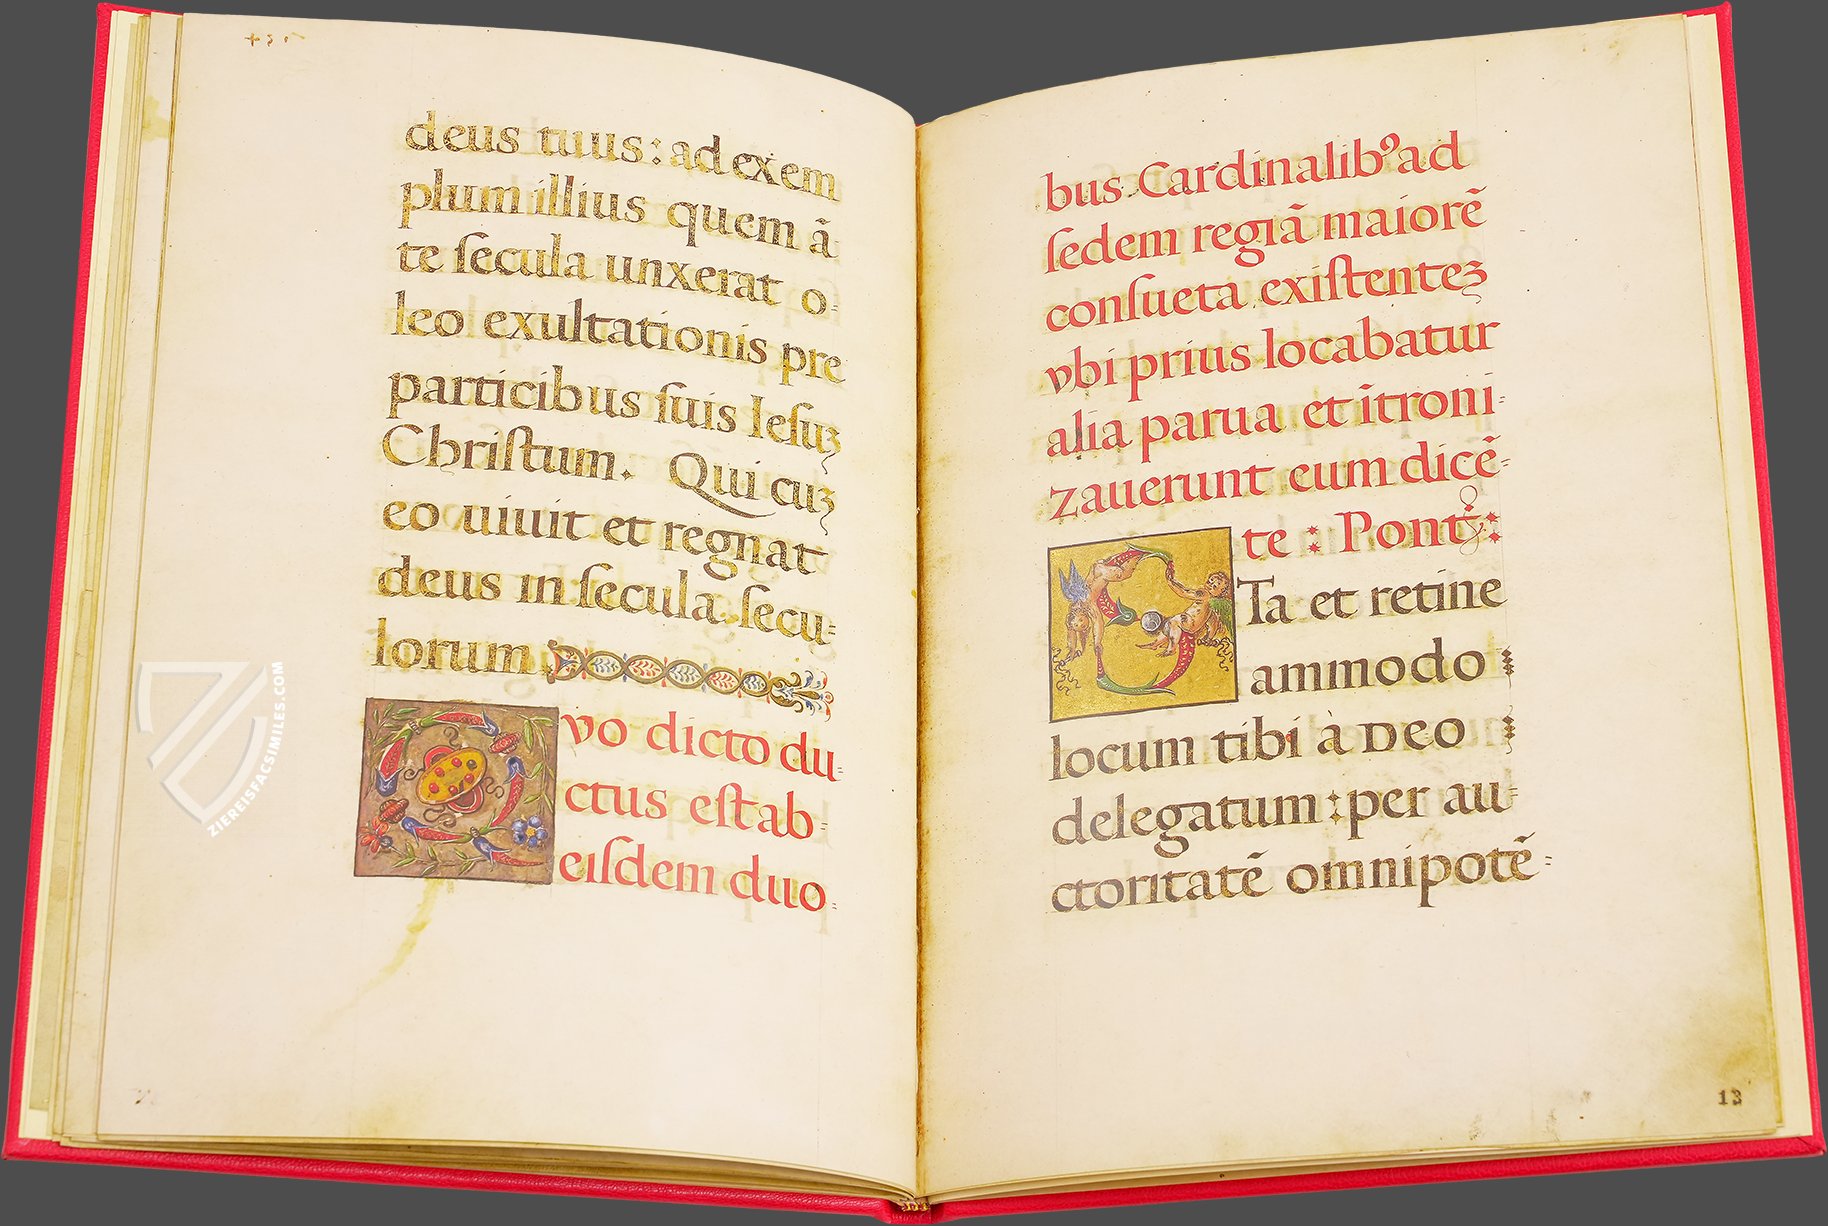 deus tuus : ad exem
plum illius quem ā
te ſecula unxerat o=
leo exultationis pre
participibus ſuis Ieſuꝫ
Chriſtum. Qui cuꝫ
eo uiuit et regnat
deus in ſecula ſecu=
lorum
Quo dicto du=
ctus eſt ab=
eiſdem duo=
bus Cardinalibꝰ ad
ſedem regiā maiorē
conſueta exiſtenteꝫ
vbi prius locabatur
alia parua et ītroni=
zauerunt eum dicē=
te : Pont: :
STa et retine
ammodo
locum tibi à DEO
delegatum : per au=
ctoritatē omnipotē=
12
ZIEREISFACSIMILES.COM